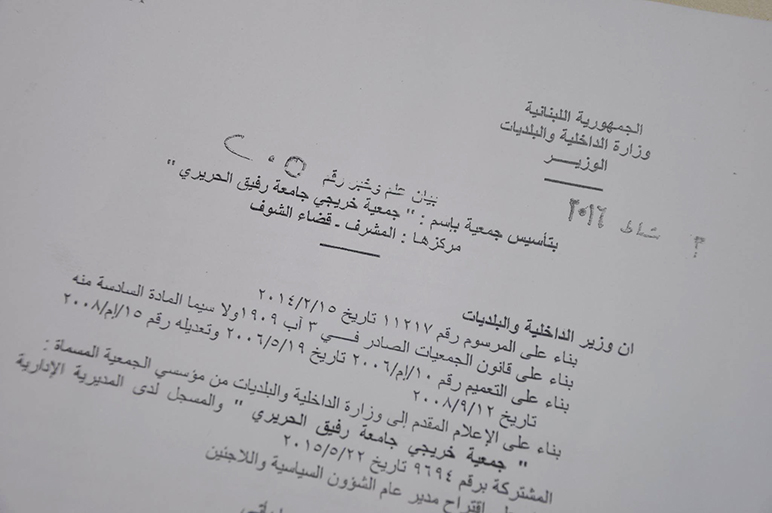 الجمهورية اللبنانية
وزارة الداخلية والبلديات
الوزيـــر
شباط ٢٠١٦
بيان علم وخبر رقم
بتأسيس جمعية باسم : " جمعية خريجي جامعة رفيق الحريري "
مركزها : المشرف - قضاء الشوف
ان وزير الداخلية والبلديات
بناء على المرسوم رقم ١١٢١٧ تاريخ ٢٠١٤/٢/١٥
بناء على قانون الجمعيات الصادر فـــي ٣ آب ١٩٠٩ ولا سيما المادة السادسة منه
بناء على التعميم رقم ١٠/إم/٢٠٠٦ تاريخ ٢٠٠٦/٥/١٩ وتعديله رقم ١٥/إم/٢٠٠٨
تاريخ ٢٠٠٨/٩/١٢
بناء على الإعلام المقدم إلى وزارة الداخلية والبلديات من مؤسسي الجمعية المسماة :
" جمعية خريجي جامعة رفيق الحريري " والمسجل لدى المديرية الإدارية
المشتركة برقم ٩٦٩٤ تاريخ ٢٠١٥/٥/٢٢
اقتراح مدير عام الشؤون السياسية واللاجئين